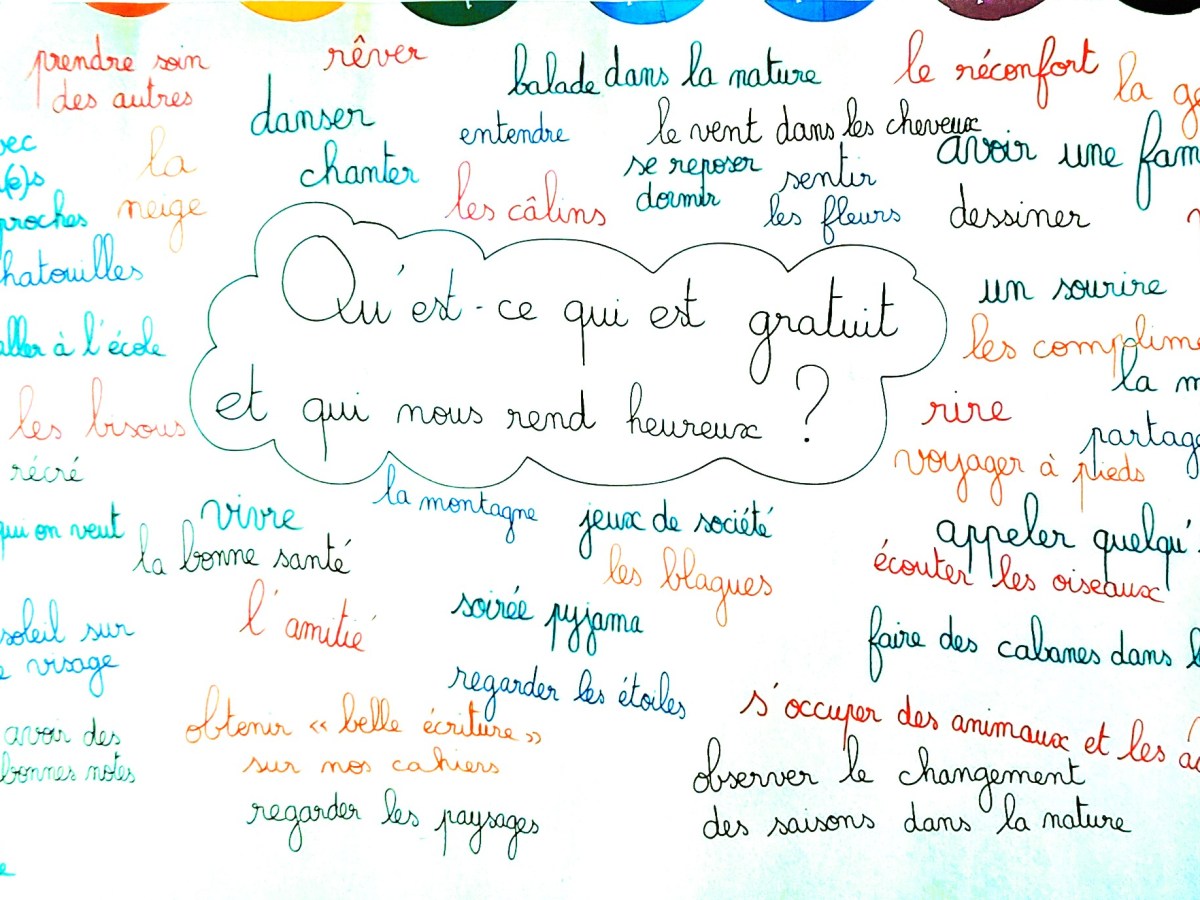 prendre soin
des autres
rêver
balade dans la nature
le réconfort
la
danser
entendre
le vent dans les cheveux
avoir une
la
neige
chanter
les câlins
se reposer
dormir
sentir
les fleurs
dessiner
proches
Qu'est-ce qui est gratuit
et qui nous rend heureux ?
aller à l'école
les bisous
récré
un sourire
les
la
rire
voyager à pieds
qui on veut
vivre
la bonne santé
la montagne
jeux de société
les blagues
appeler
écouter les oiseaux
soleil sur
visage
l'amitié
soirée pyjama
regarder les étoiles
faire des cabanes dans
avoir des
bonnes notes
obtenir « belle écriture »
sur nos cahiers
regarder les paysages
s'occuper des animaux et les
observer le changement
des saisons dans la nature